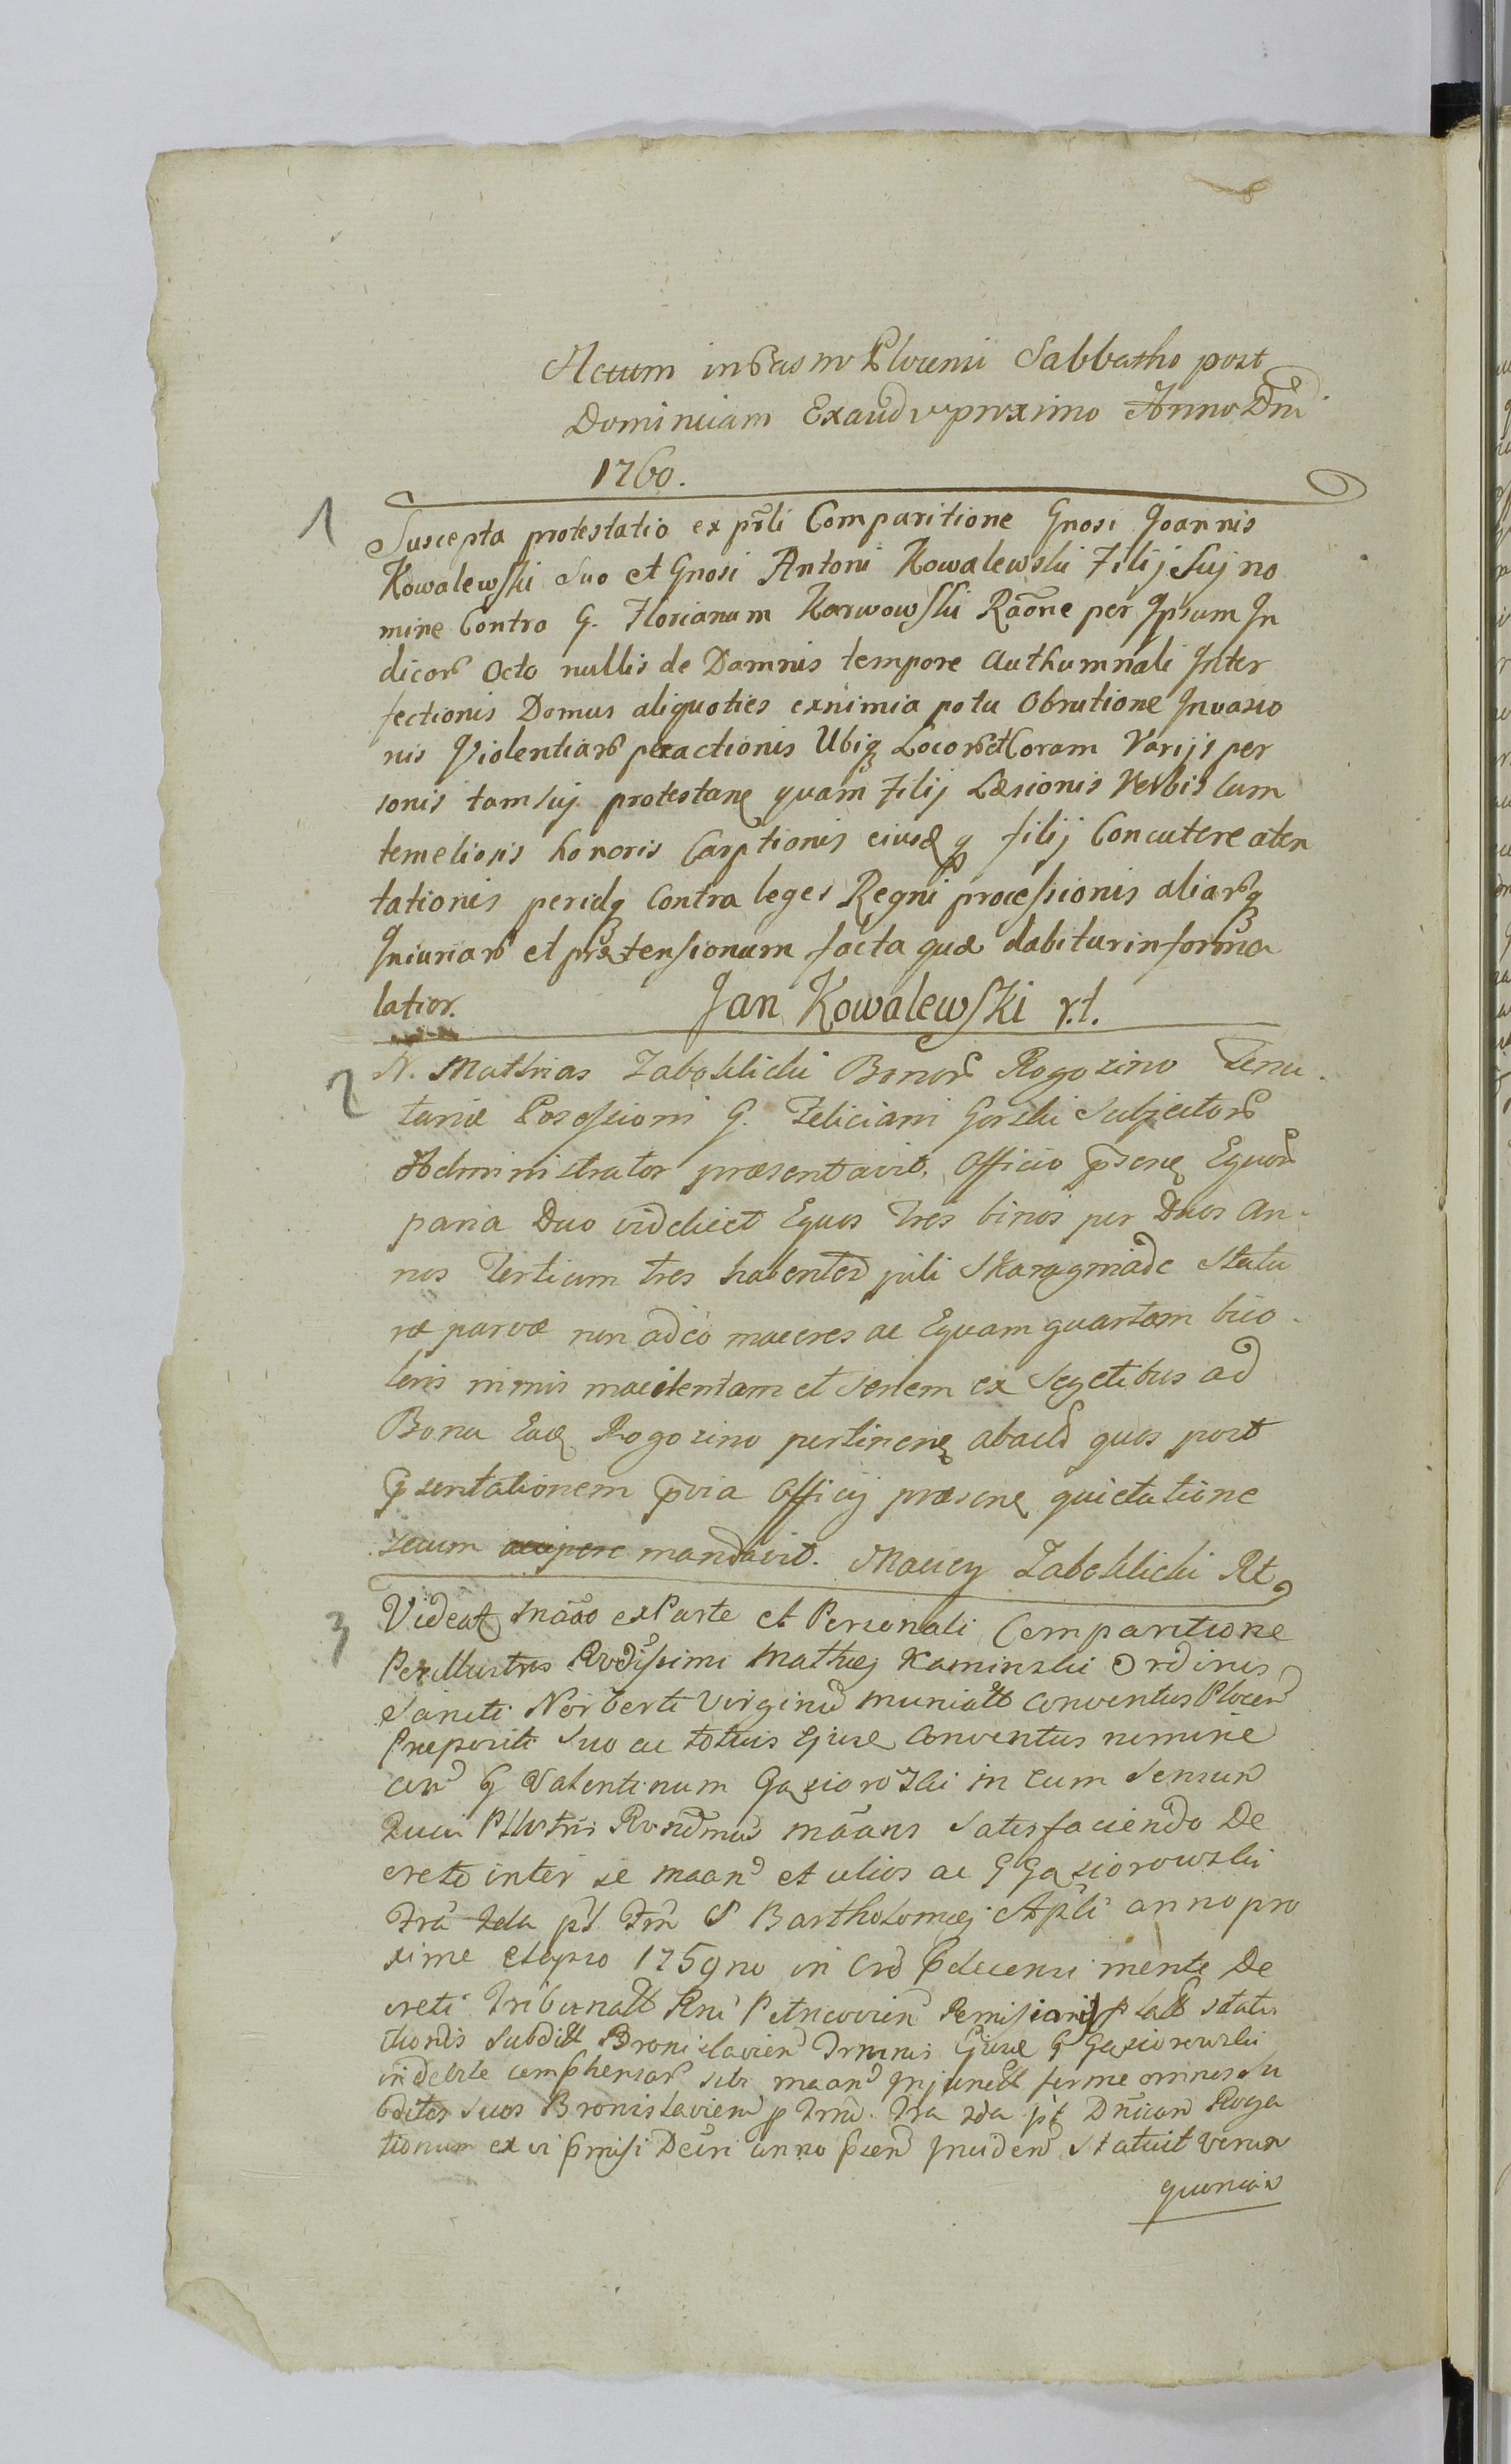 Actum in Castro Plocensi Sabbatho post
Dominicam Exaudi proximo Anno Dñi
1760.
1
Suscepta protestatio ex prsli Comparitione Gnosi Joannis
Kowalewski Suo et Gnosi Antoni Kowalewski Filij Suj no
mine Contro G. Florianum Karwowski Raõne per Ipsum In
dicor octo nullis de Damnis tempore Authumnali Inter
fectionis Domus aliquoties ex nimia potu Obrutione Invasio
nis Violentiar peractionis Ubiq Locor et Coram Varijs per
sonis tam suj protestane quam Filij Læsionis Verbis Cum
temeliosis honoris Carptionis eiusd q filij Concutere aten
tationis peridq Contra leges Regni processionis aliarq
Iniuriar et prætensionum facta quæ dabitur in forma
latior. Jan Kowalewski r.t.
2
N. Mathias Zaboklicki Bonor Rogozino Tenu
tariæ Possessioni G. Feliciani Gorski Subjector
Administrator præsentavit Officio psene Equor
paria Duo videlicet Equos Tres binos per Duos An-
nos Tertium tres habentes pili Skarogniade Statu
ræ parvæ non adeo maceres ac Equam quartam bico
loris nimis macilentam et senem ex Segetibus ad
Bona Ead Rogozino pertinene abact quos post
psentationem pvia Officij præsene quietatione
secum accipere mandavit. Maciey Zaboklicki Rt
3
Videat Maõo ex Parte et Personali Comparitione
Perillustris Rvdissimi Mathej Kaminski Ordinis
Sancti Norberti Virginu Muniatt Conventus Plocen
Præpositi Suo ac totius Ejusd Conventus nomine
con G Valentinum Gasiorowski in Eum Sensum
Quia Pllustris Rvndmus maans Satisfaciendo De
creto inter se maan et alios ac G Gasiorowski
Fra 2da pst Fm S Bartholomej Apli anno pro
xime elapso 1759no in Cro Plocensi mente De
creti Tribunatt Rni Petricovien Remissionis p Latt Statu
tionis Subditt Bronislavien Trminis Ejusd G Gasiorowski
indebite comphensar sibi maan Injunctt ferme omnes Su
bditos Suos Bronislavien p Trmi. Fra 2da pst Dnicam Roga
tionum ex vi pmissi Decri anno psen Inciden Statuit verum
quoniam